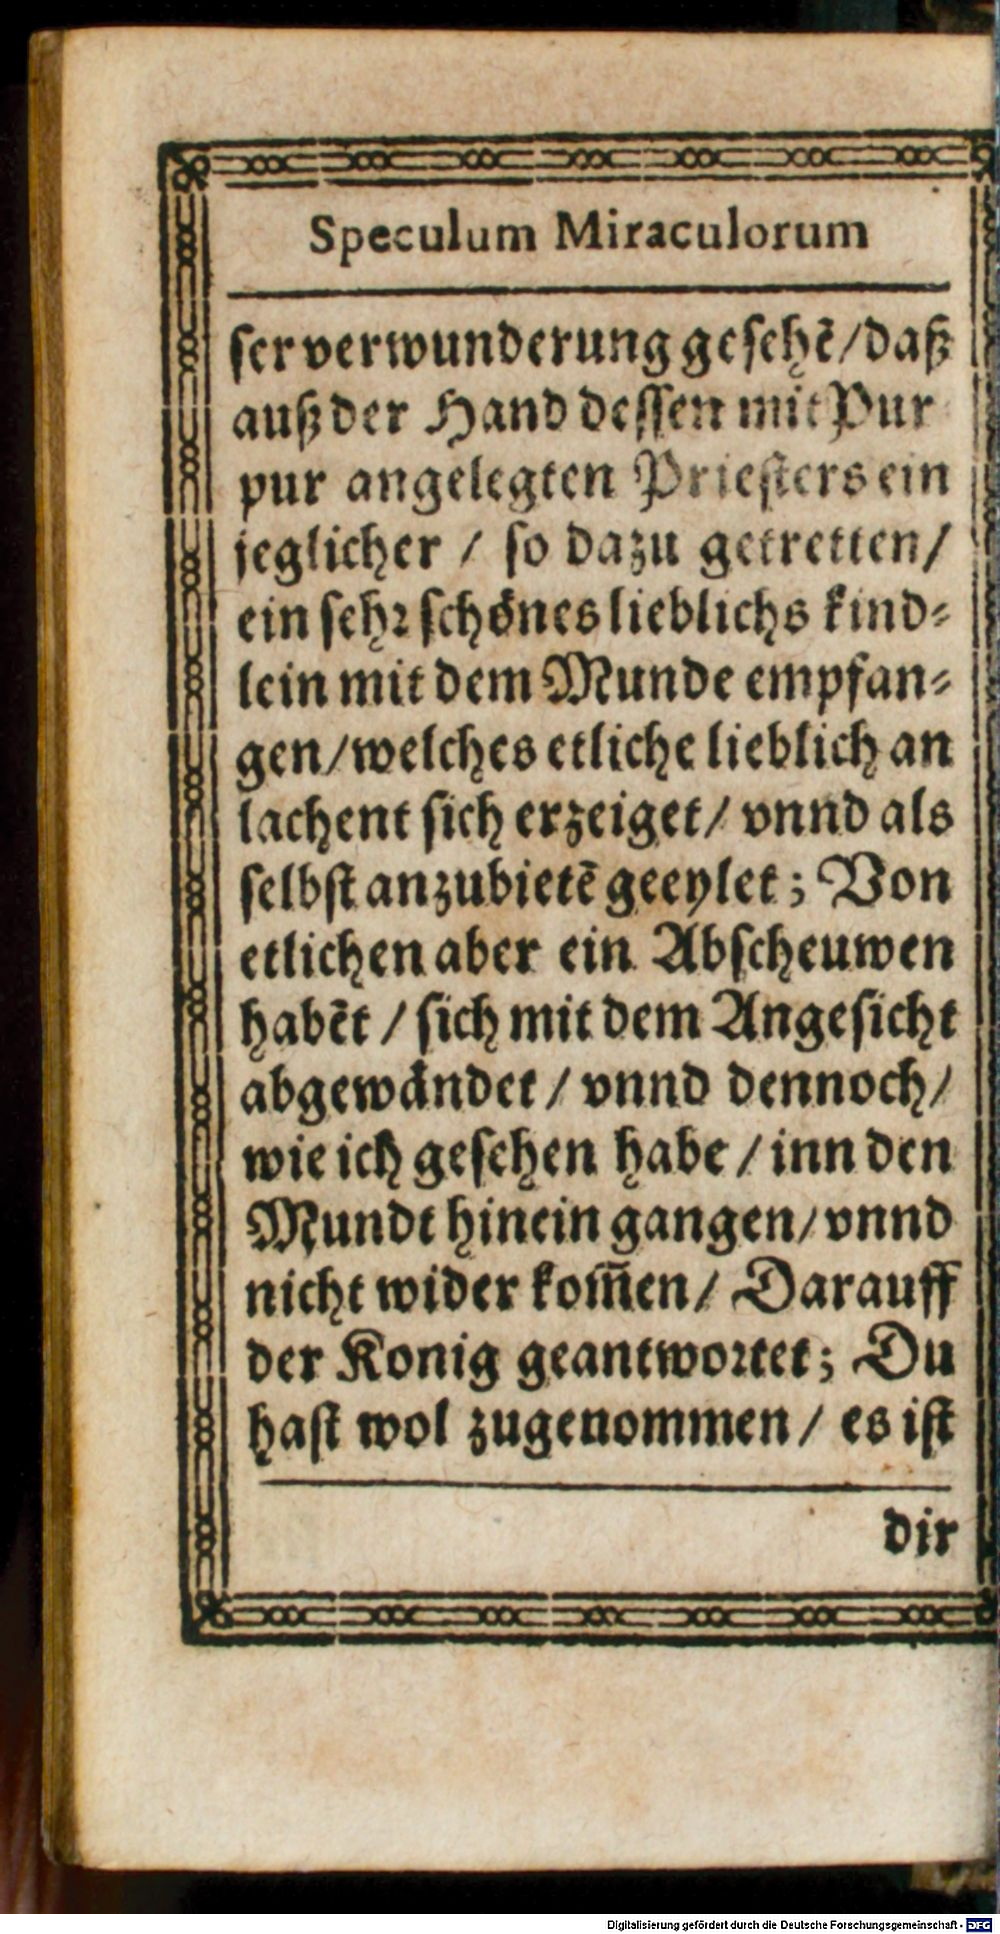 Speculum Miraculorum
ser verwunderung gesehẽ/daß
auß der Hand dessen mit Pur
pur angelegten Priesters ein
jeglicher / so dazu getretten/
ein sehr schönes lieblichs kind⸗
lein mit dem Munde empfan⸗
gen/welches etliche lieblich an
lachent sich erzeiget/ vnnd als
selbst anzubietẽ geeylet; Von
etlichen aber ein Abscheuwen
habẽt / sich mit dem Angesicht
abgewåndet / vnnd dennoch/
wie ich gesehen habe / inn den
Mundt hinein gangen/vnnd
nicht wider kom̃en/ Darauff
der Konig geantwortet; Du
hast wol zugenommen / es ist
dir
Digitalisierung gefördert durch die Deutsche Forschungsgemeinschaft - DFG